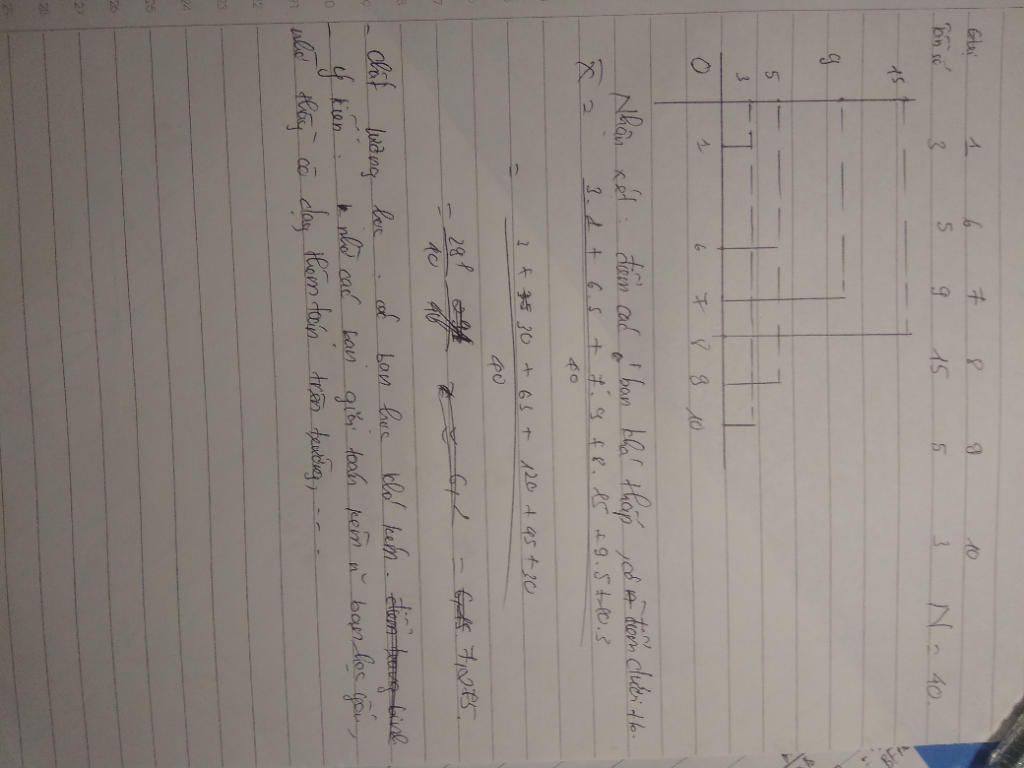 Giá trị 1 6 7 8 9 10
Tần số 3 5 9 15 5 3 N = 40.
15
9
5
3
0 1 6 7 8 9 10
Nhận xét: điểm các bạn khá thấp, có điểm dưới tb.
X = 3.1 + 6.5 + 7.9 + 8.15 + 9.5 + 10.3
40
= 3 + 30 + 63 + 120 + 45 + 30
40
= 291
40
= 7,275.
- Chất lượng học: có bạn học khá kém.
- Ý kiến: nhờ các bạn giỏi toán kèm bạn học yếu,
nhờ thầy cô dạy thêm toán trên trường, ---